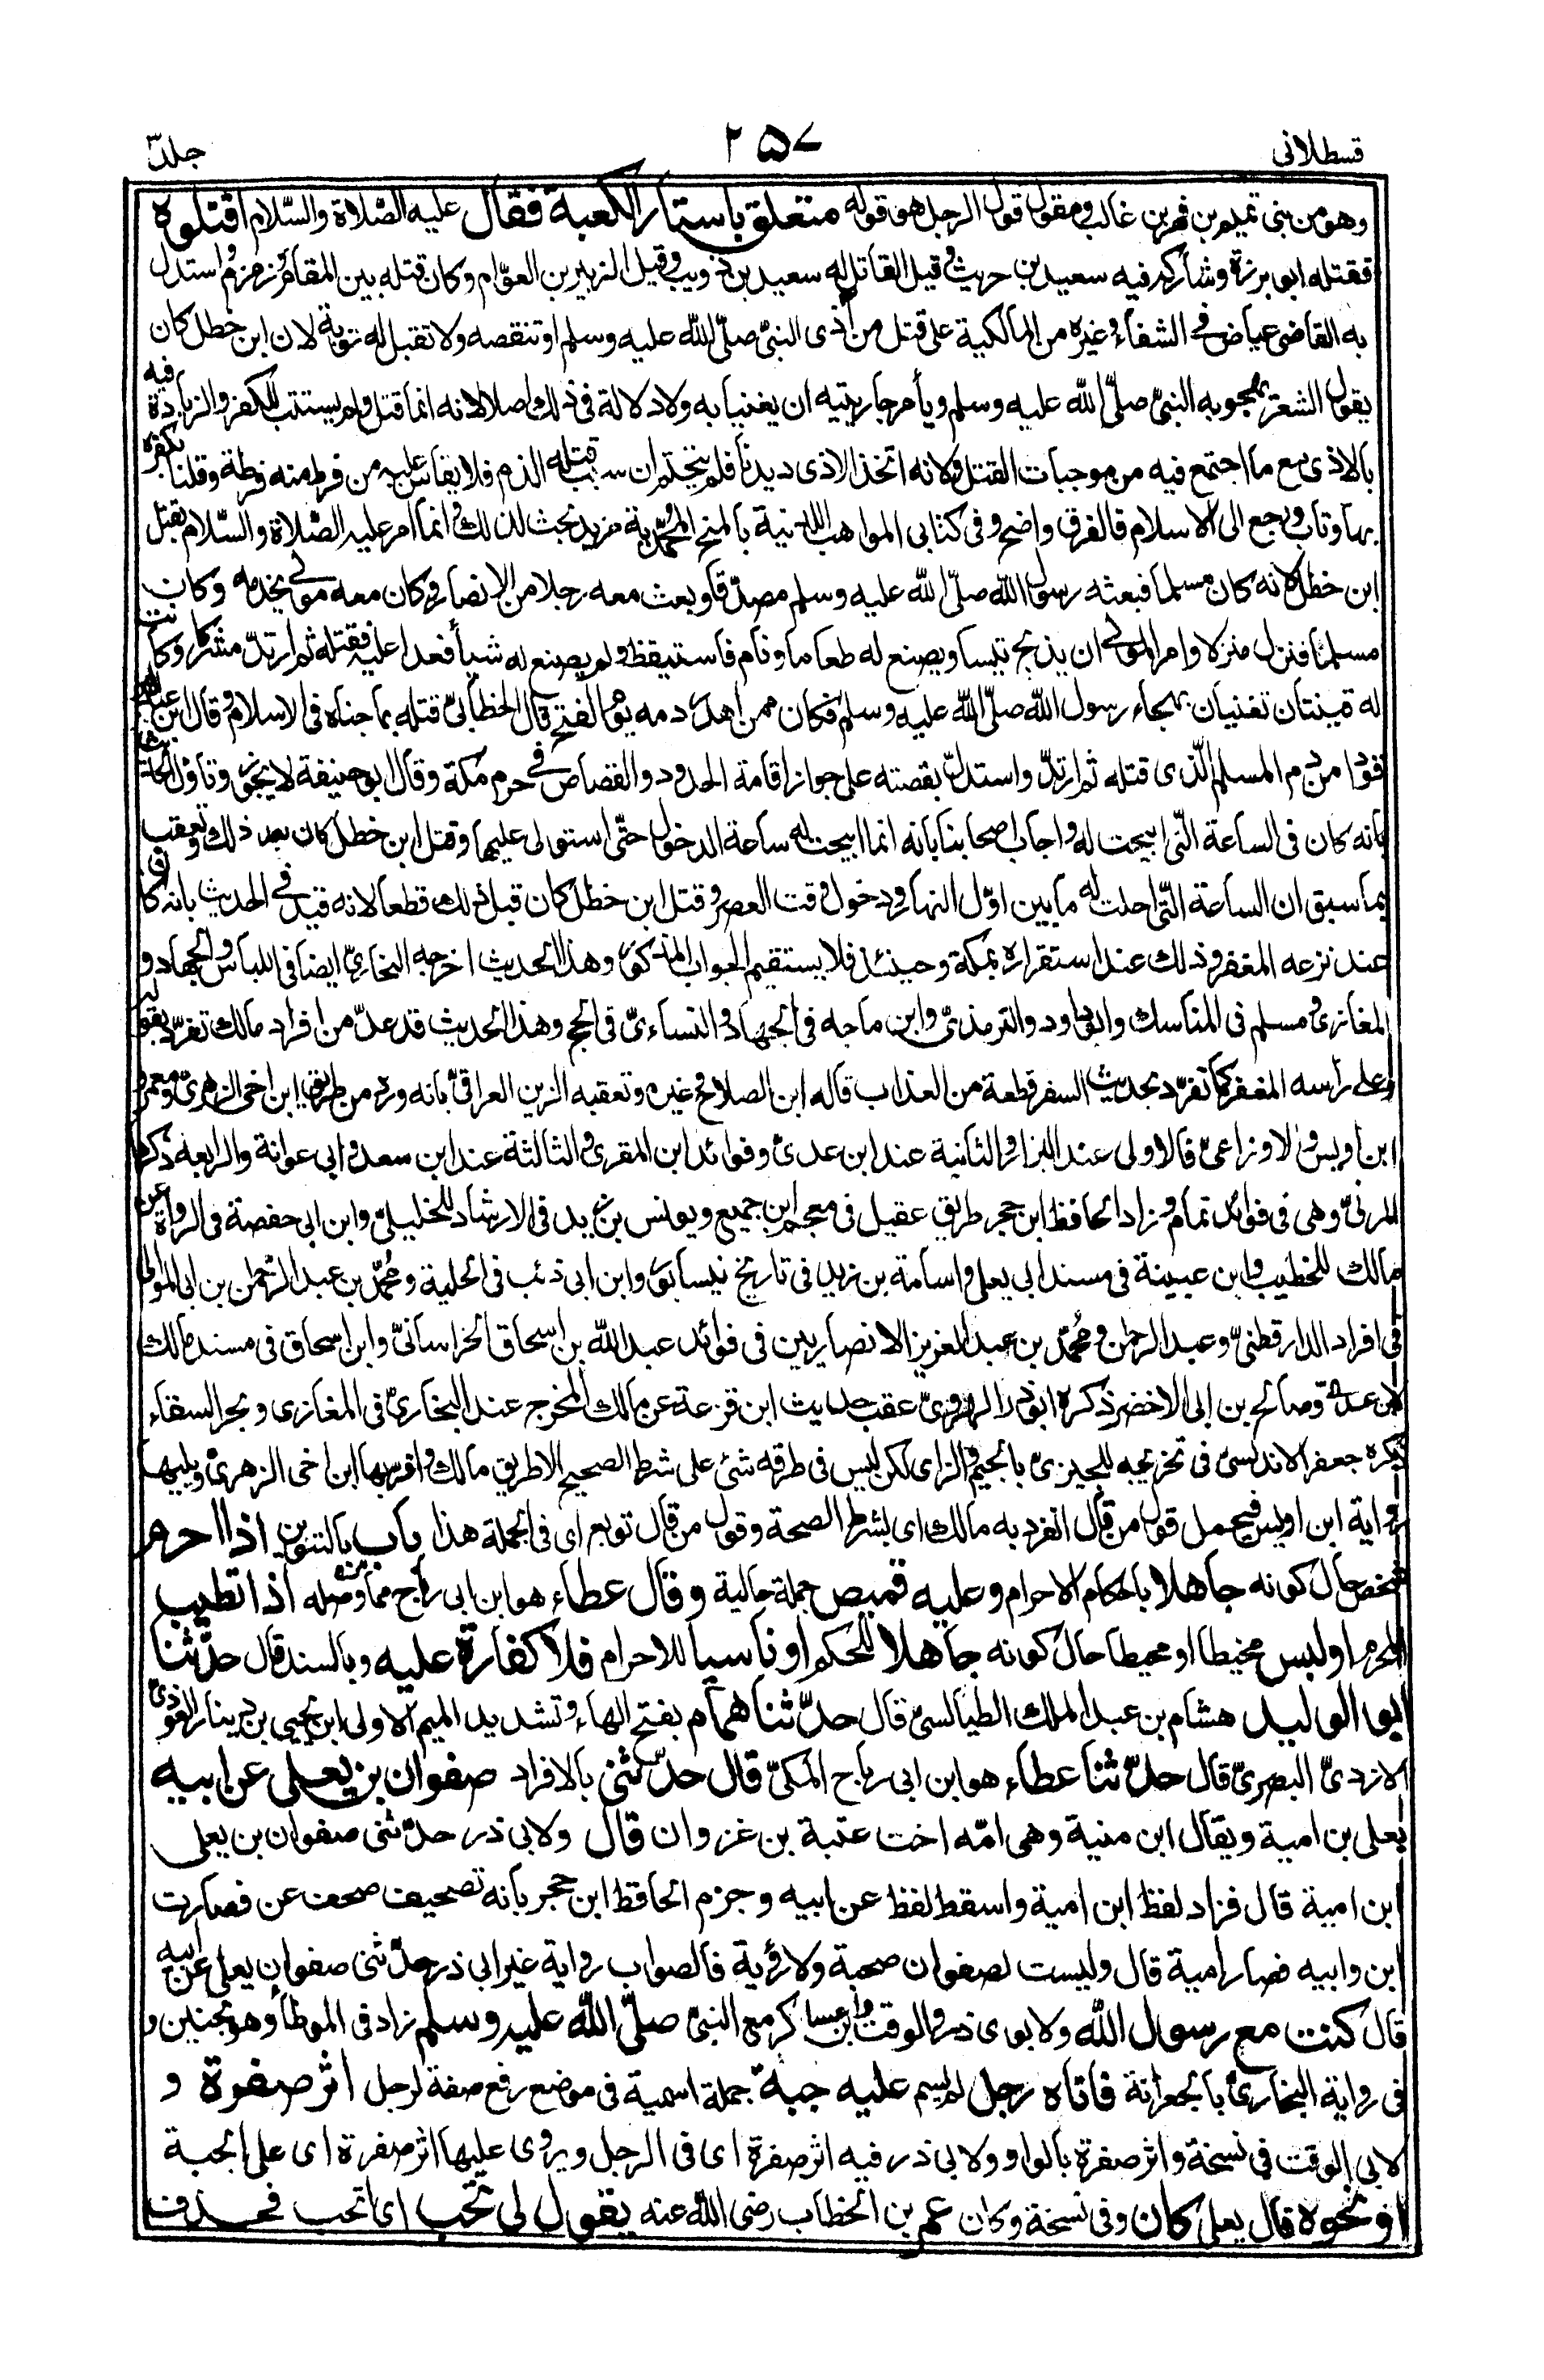 قسطلاني ٢٥٧ جلد ٣
وهو من بني تميم بن فهر بن غالب ومقول قول الرجل هو قوله متعلق باستار الكعبة فقال عليه الصّلاة والسّلام اقتلوه
فقتله ابو برزة وشاركه فيه سعيد بن حريث وقيل القاتل له سعيد بن ذويب وقيل الزبير بن العوّام وكان قتله بين المقام وزمزم واستدل
به القاضى عياض فى الشفاء وغيره من المالكية على قتل من أذى النبىّ صلّى اللّه عليه وسلم او تنقصه ولا تقبل له توبة لان ابن خطل كان
يقول الشعر يهجو به النبىّ صلّى اللّه عليه وسلم ويأمر جاريتيه ان يغنيا به ولا دلالة فى ذلك اصلا لانه انما قتل ولم يستتب للكفر والزيادة فيه
بالاذى مع ما اجتمع فيه من موجبات القتل ولانه اتخذ الاذى ديدنا فلم يتحتم ان سبب قتله الذم فلا يقاس عليه من فرط منه فرطة وقلنا بكفره
بها وتاب ورجع الى الاسلام فالفرق واضح وفى كتابى المواهب اللدنية بالمنح المحمّدية مزيد بحث لذلك وانما امر عليه الصّلاة والسّلام بقتل
ابن خطل لانه كان مسلما فبعثه رسول اللّه صلّى اللّه عليه وسلم مصدّقا وبعث معه رجلا من الانصار وكان معه مولى يخدمه وكان
مسلما فنزل منزلا وامر المولى ان يذبح تيسا ويصنع له طعاما ونام فاستيقظ ولم يصنع له شيأ فعدا عليه فقتله ثم ارتدّ مشركا وكانت
له قينتان تغنيان بهجاء رسول اللّه صلّى اللّه عليه وسلم فكان ممن اهدر دمه يوم الفتح قال الخطابىّ قتله بما جناه فى الاسلام وقال ابن عبد البر
قودا من دم المسلم الّذى قتله ثم ارتدّ واستدلّ بقصته على جواز اقامة الحدود والقصاص فى حرم مكة وقال ابو حنيفة لا يجوز وتاوّل الحديث
بانه كان فى الساعة الّتى ابيحت له واجاب اصحابنا بانه انما ابيحت له ساعة الدخول حتّى استولى عليها وقتل ابن خطل كان بعد ذلك وتعقب
بما سبق ان الساعة الّتى احلت له ما بين اوّل النهار ودخول وقت العصر وقتل ابن خطل كان قبل ذلك قطعا لانه قيد فى الحديث بانه كان
عند نزعه المغفر وذلك عند استقراره بمكة وحينئذ فلا يستقيم الجواب المذكور وهذا الحديث اخرجه البخارىّ ايضا فى اللباس والجهاد و
المغازى ومسلم فى المناسك وابو داود والترمذىّ وابن ماجه فى الجهاد والنساءىّ فى الحج وهذا الحديث قد عدّ من افراد مالك تفرّد بقوله
وعلى رأسه المغفر كما تفرّد بحديث السفر قطعة من العذاب قاله ابن الصلاح وغيره وتعقبه الزين العراقىّ بانه ورد من طريق ابن اخى الزهرىّ ومعمر و
ابن اويس والاوزاعىّ فالاولى عند البزار والثانية عند ابن عدىّ وفوائد ابن المقرى والثالثة عند ابن سعد وابى عوانة والرابعة ذكرها
المزنىّ وهى فى فوائد تمام وزاد الحافظ ابن حجر طريق عقيل فى معجم ابن جميع ويونس بن يزيد فى الارشاد للخليلىّ وابن ابى حفصة فى الرواة عن
مالك للخطيب وابن عيينة فى مسند ابى يعلى واسامة بن زيد فى تاريخ نيسابور وابن ابى ذئب فى الحلية ومحمّد بن عبد الرّحمٰن بن ابى الموالى
فى افراد الدارقطنىّ وعبد الرحمٰن ومحمّد بن عبد العزيز الانصاريين فى فوائد عبد اللّه بن اسحاق الخراسانىّ وابن اسحاق فى مسند مالك
لابن عدىّ وصالح بن ابى الاخضر ذكره ابو ذر الهروىّ عقب حديث ابن قزعة عن مالك المخرج عند البخارىّ فى المغازى وبحر السقاء
ذكره جعفر الاندلسىّ فى تخريجه للجيزى بالجيم والزاى لكن ليس فى طرقه شئ على شرط الصحيح الا طريق مالك واقربها ابن اخى الزهرىّ ويليها
رواية ابن اويس فيحمل قول من قال انفرد به مالك اى بشرط الصحة وقول من قال توبع اى فى الجملة هذا باب بالتنوين اذا احرم
شخص حال كونه جاهلا باحكام الاحرام وعليه قميص جملة حالية وقال عطاء هو ابن ابى رباح مما وصله اذا تطيب
المحرم او لبس مخيطا او محيطا حال كونه جاهلا للحكم او ناسيا للاحرام فلا كفارة عليه وبالسند قال حدّثنا
ابو الوليد هشام بن عبد الملك الطيالسىّ قال حدّثنا همام بفتح الهاء وتشديد الميم الاولى ابن يحيى بن دينار العوذى
الازدىّ البصرىّ قال حدّثنا عطاء هو ابن ابى رباح المكىّ قال حدّثنى بالافراد صفوان بن يعلى عن ابيه
يعلى بن امية ويقال ابن منية وهى امّه اخت عتبة بن غزوان قال ولابى ذر حدّثنى صفوان بن يعلى
ابن امية قال فزاد لفظ ابن امية واسقط لفظ عن ابيه وجزم الحافظ ابن حجر بانه تصحيف صحف عن فصارت
ابن وابيه فصار امية قال وليست لصفوان صحبة ولا رؤية فالصواب رواية غير ابى ذر حدّثنى صفوان بن يعلى عن ابيه
قال كنت مع رسول اللّه ولابوى ذر والوقت وابن عساكر مع النبىّ صلّى اللّه عليه وسلم زاد فى الموطأ وهو بحنين و
فى رواية البخارىّ بالجعرانة فاتاه رجل لم يسم عليه جبة جملة اسمية فى موضع رفع صفة لرجل اثر صفرة و
لابى الوقت فى نسخة واثر صفرة بالواو ولابى ذر فيه اثر صفرة اى فى الرجل ويروى عليها اثر صفرة اى على الجبة
او نحوه قال يعلى كان وفى نسخة وكان عمر بن الخطاب رضى اللّه عنه يقول لى تحب اى اتحب فحذف